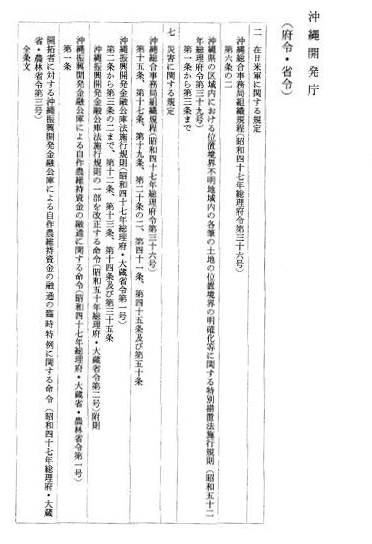 沖縄開発庁
(府令・省令)
一 在日米軍に関する規定
沖縄総合事務局組織規程(昭和四十七年総理府令第三十六号)
第六条の二
沖縄県の区域内における位置境界不明地域内の各筆の土地の位置境界の明確化等に関する特別措置法施行規則(昭和五十二
年総理府令第三十九号)
第一条から第三条まで
七 災害に関する規定
沖縄総合事務局組織規程(昭和四十七年総理府令第三十六号)
第十五条、第十七条、第十九条、第二十条の二、第四十一条、第四十五条及び第五十条
沖縄振興開発金融公庫法施行規則(昭和四十七年総理府・大蔵省令第一号)
第二条から第三条の二まで、第十二条、第十三条、第十四条及び第三十五条
沖縄振興開発金融公庫法施行規則の一部を改正する命令(昭和五十年総理府・大蔵省令第二号)附則
沖縄振興開発金融公庫による自作農維持資金の融通に関する命令(昭和四十七年総理府・大蔵省・農林省令第一号)
第一条
開拓者に対する沖縄振興開発金融公庫による自作農維持資金の融通の臨時特例に関する命令(昭和四十七年総理府・大蔵
省・農林省令第三号)
全条文